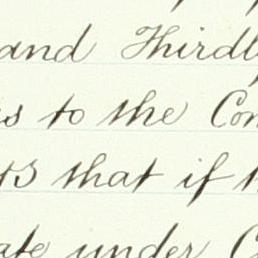 and Thirdl
s to the Con
that if t
ate under C